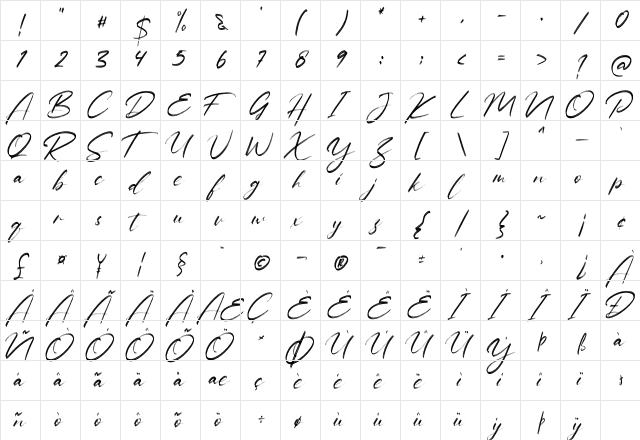 ! " # $ % & ' ( ) * + , - . / 0
1 2 3 4 5 6 7 8 9 : ; < = > ? @
A B C D E F G H I J K L M N O P
Q R S T U V W X Y Z [ \ ] ^ _ `
a b c d e f g h i j k l m n o p
q r s t u v w x y z { | } ~ ¡ ¢
£ ¤ ¥ ¦ § ¨ © ¬ ® ¯ ± ´ · ¸ ¿ À
Á Â Ã Ä Å Æ Ç È É Ê Ë Ì Í Î Ï Ð
Ñ Ò Ó Ô Õ Ö × Ø Ù Ú Û Ü Ý Þ ß à
á â ã ä å æ ç è é ê ë ì í î ï ð
ñ ò ó ô õ ö ÷ ø ù ú û ü ý þ ÿ